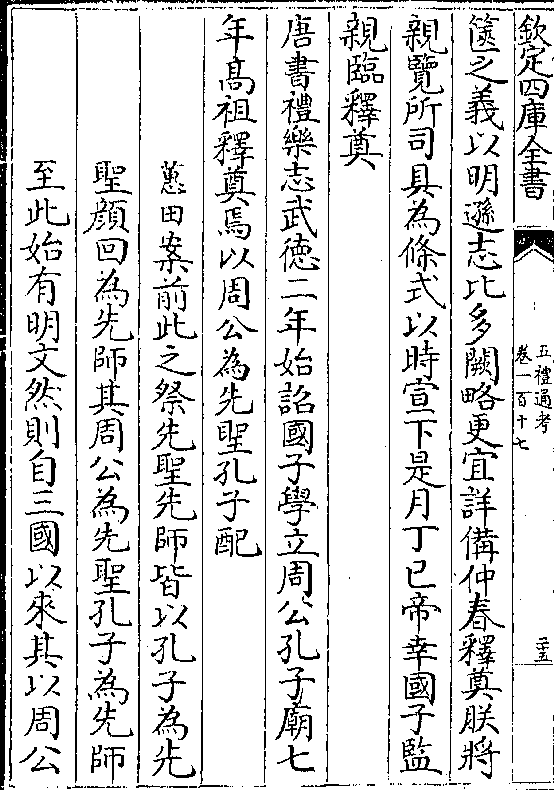 欽定四庫全書
五禮通考
卷一百十七
二五
篋之義以明遜志比多闕略更宜詳備仲春釋奠朕將
親覽所司具為條式以時宣下是月丁巳帝幸國子監
親臨釋奠
唐書禮樂志武德二年始詔國子學立周公孔子廟七
年髙祖釋奠焉以周公為先聖孔子配
蕙田案前此之祭先聖先師皆以孔子為先
聖顔回為先師其周公為先聖孔子為先師
至此始有明文然則自三國以來其以周公